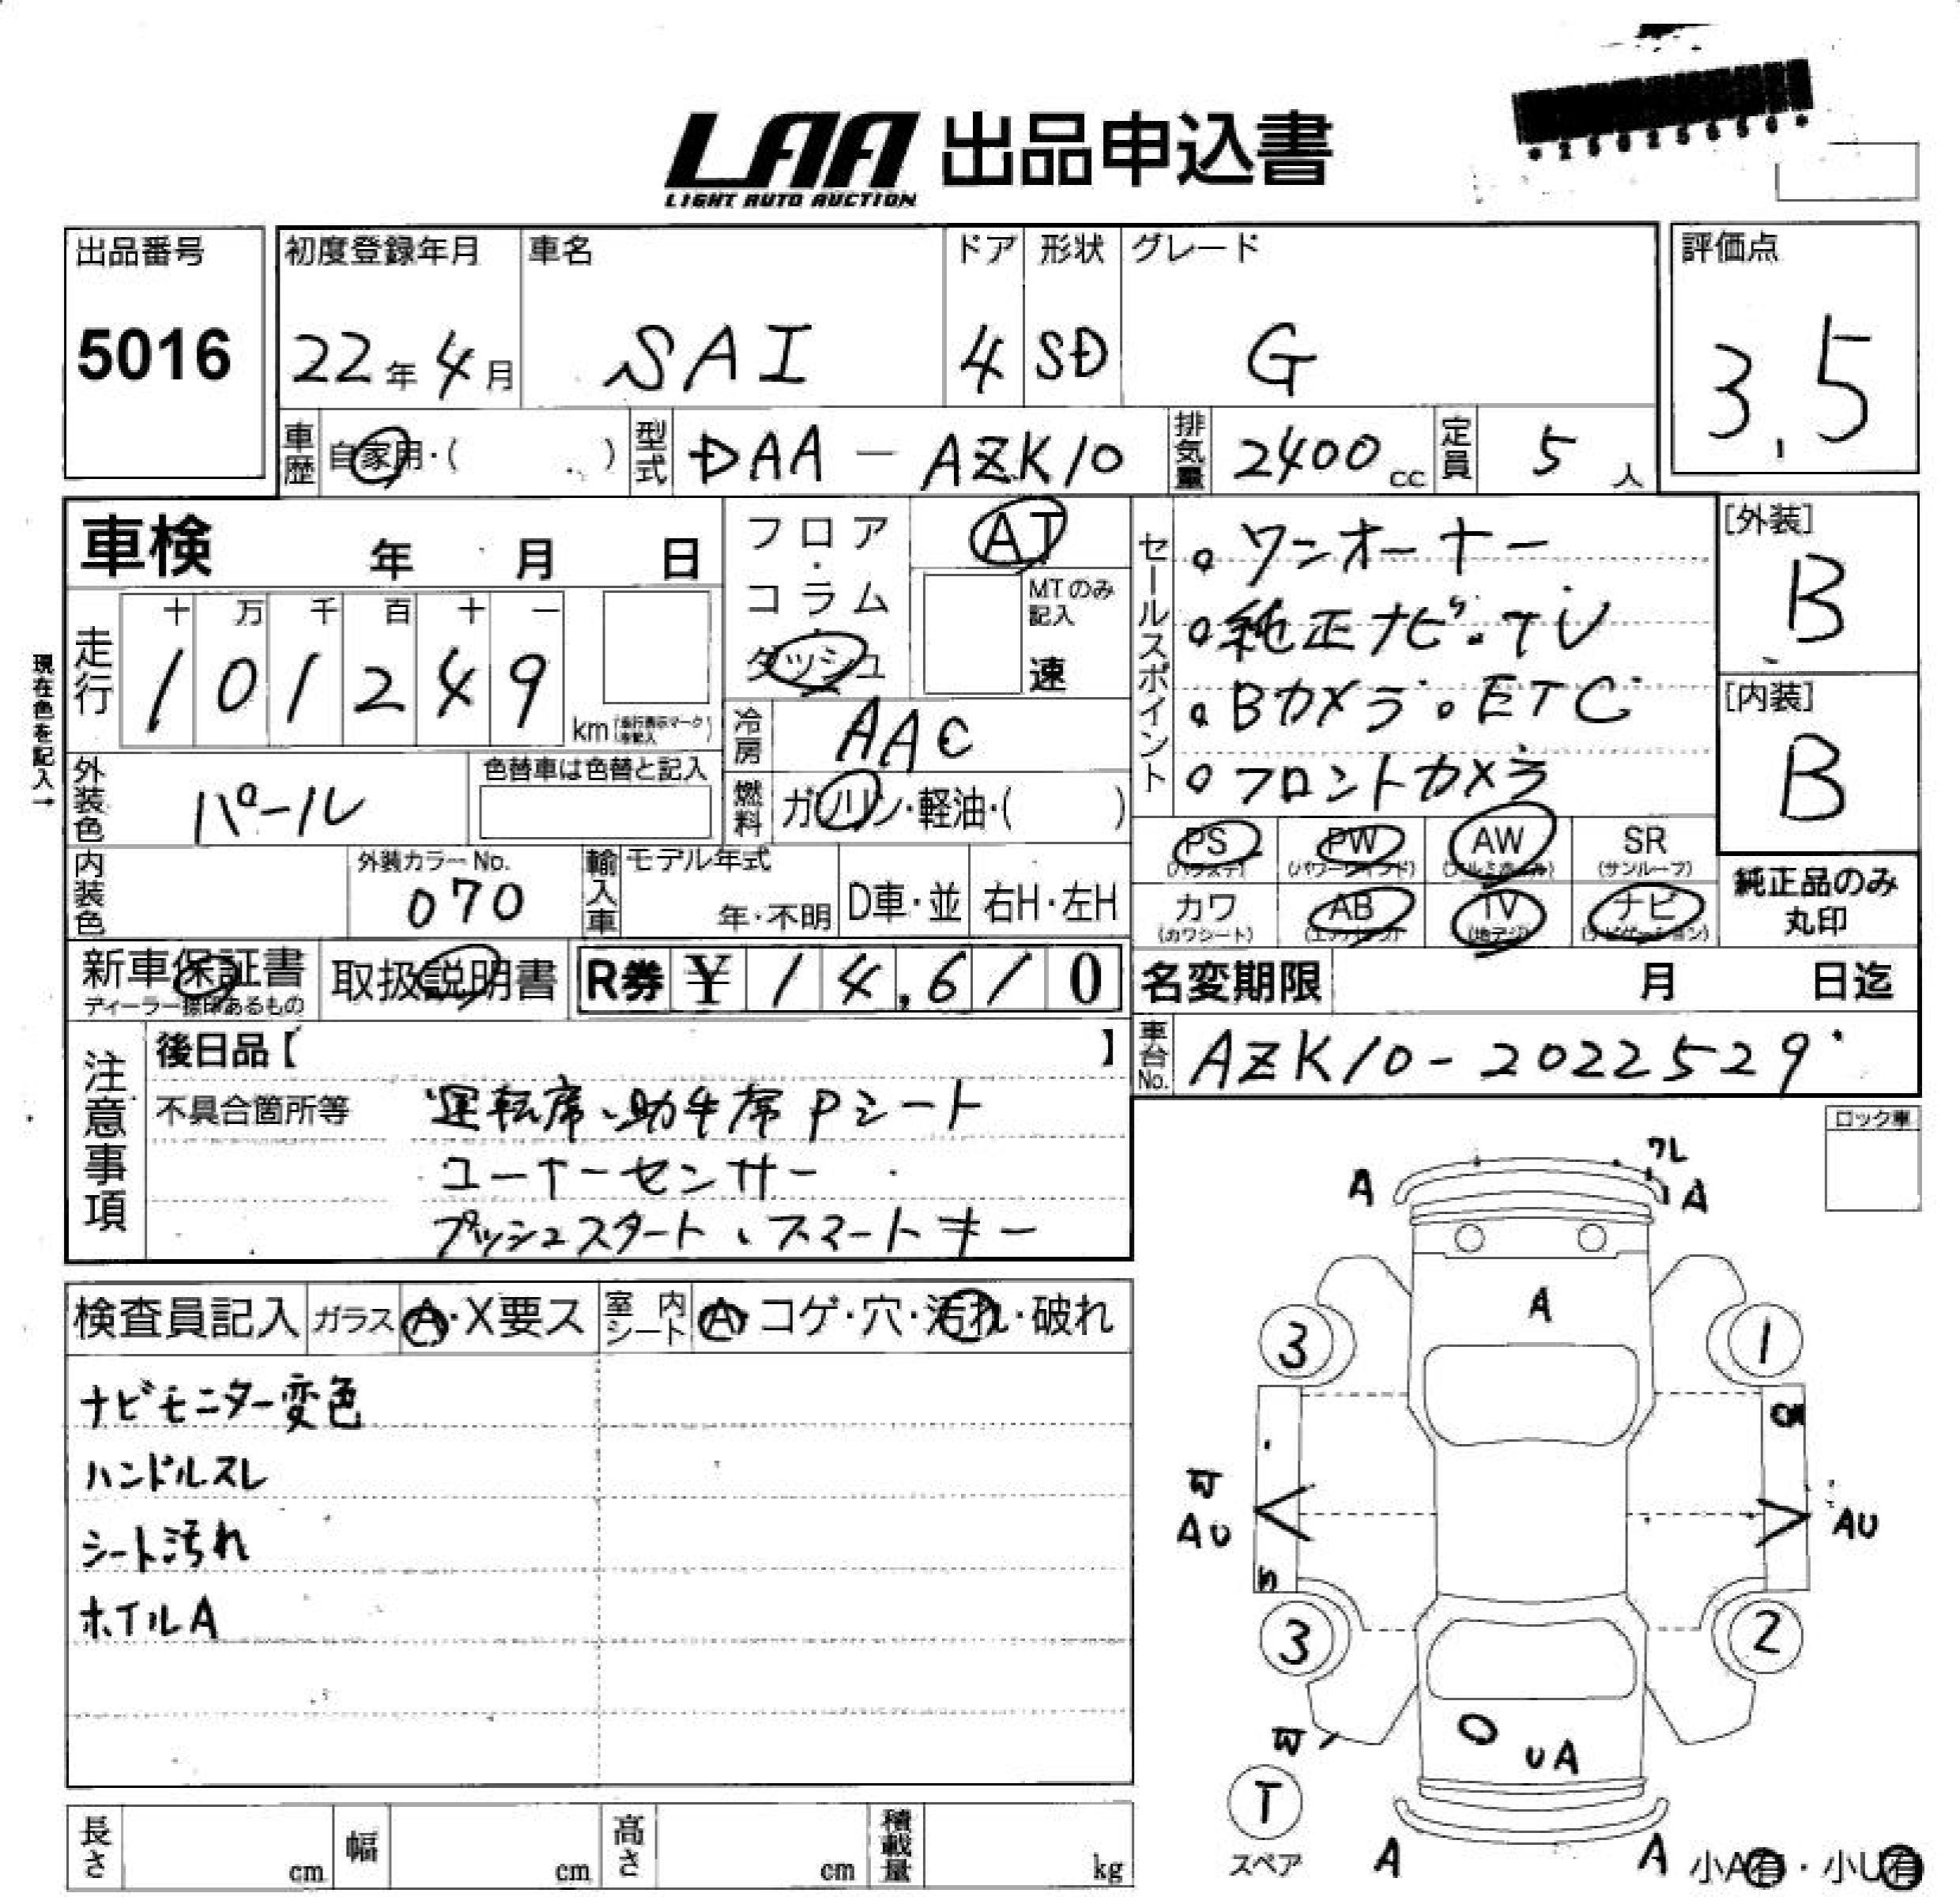 LAA 出品申込書
LIGHT AUTO AUCTION
*25025650*
出品番号 初度登録年月 車名 ドア 形状 グレード 評価点
5016 22年4月 SAI 4 SD G 3.5
車歴 自家用・( ) 型式 DAA-AZK10 排気量 2400cc 定員 5人
車検 年 月 日
フロア・コラム・ダッシュ
AT
MTのみ記入
速
現在色を記入→
走行 十 万 千 百 十 一
101249 km
冷房 AAC
外装色 パール 色替車は色替と記入
燃料 ガソリン・軽油・( )
セールスポイント
。ワンオーナー
。純正ナビ。TV
。Bカメラ。ETC
。フロントカメラ
[外装]
B
[内装]
B
PS PW AW SR
(パワステ) (パワーウィンド) (アルミホイル) (サンルーフ)
カワ AB TV ナビ
(カワシート) (エアバッグ) (地デジ) (ナビゲーション)
純正品のみ
丸印
内装色 外装カラーNo. 070 輸入車 モデル年式 年・不明 D車・並 右H・左H
新車保証書 取扱説明書 R券 ¥14,610 名変期限 月 日迄
ディーラー捺印あるもの
車台No. AZK10-2022529
注意事項
後日品【 】
不具合箇所等 運転席、助手席Pシート
コーナーセンサー
プッシュスタート、スマートキー
ロック車
検査員記入 ガラス A・X要ス 室内シート A・コゲ・穴・汚れ・破れ
ナビモニター変色
ハンドルスレ
シート汚れ
ホイルA
ワレ
A A
A
3 1
AU AU
3 2
UA
T
スペア
A A
小A有・小U有
長さ cm 幅 cm 高さ cm 積載量 kg